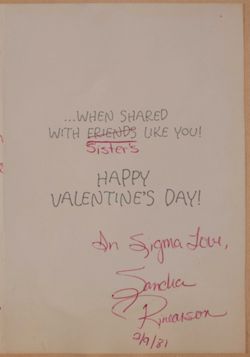 ...WHEN SHARED
WITH FRIENDS LIKE YOU!
Sister's
HAPPY
VALENTINE'S DAY!
In Sigma Love,
Sandra
Rinearson
2/9/81